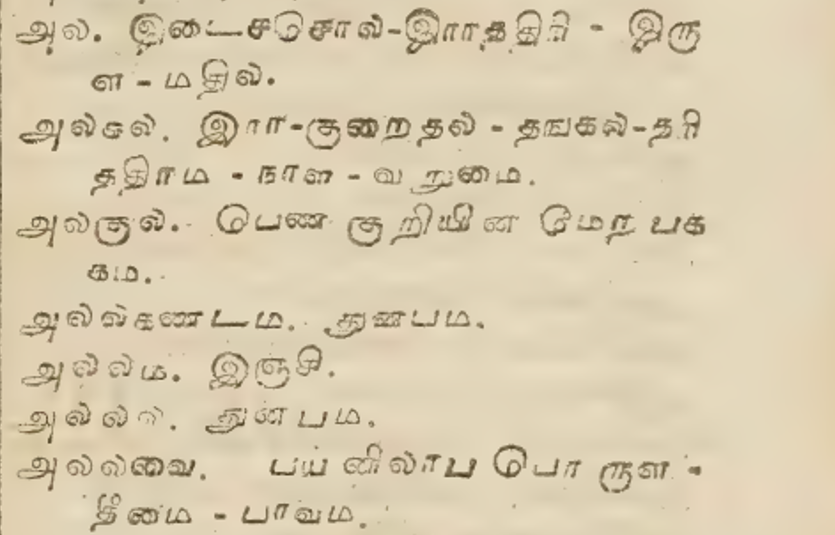 அல. இடைசசொல-இராததிரி - இரு
ள - மதில.
அலகல. இரா-குறைதல - தஙகல-தரி
ததிரம - நாள - வறுமை.
அலகுல. பெண குறியின மேற பக
கம.
அலலகணடம. துனபம.
அலலம. இஞசி.
அலலல. துனபம.
அலலவை. பயனிலாப பொருள -
தீமை - பாவம.